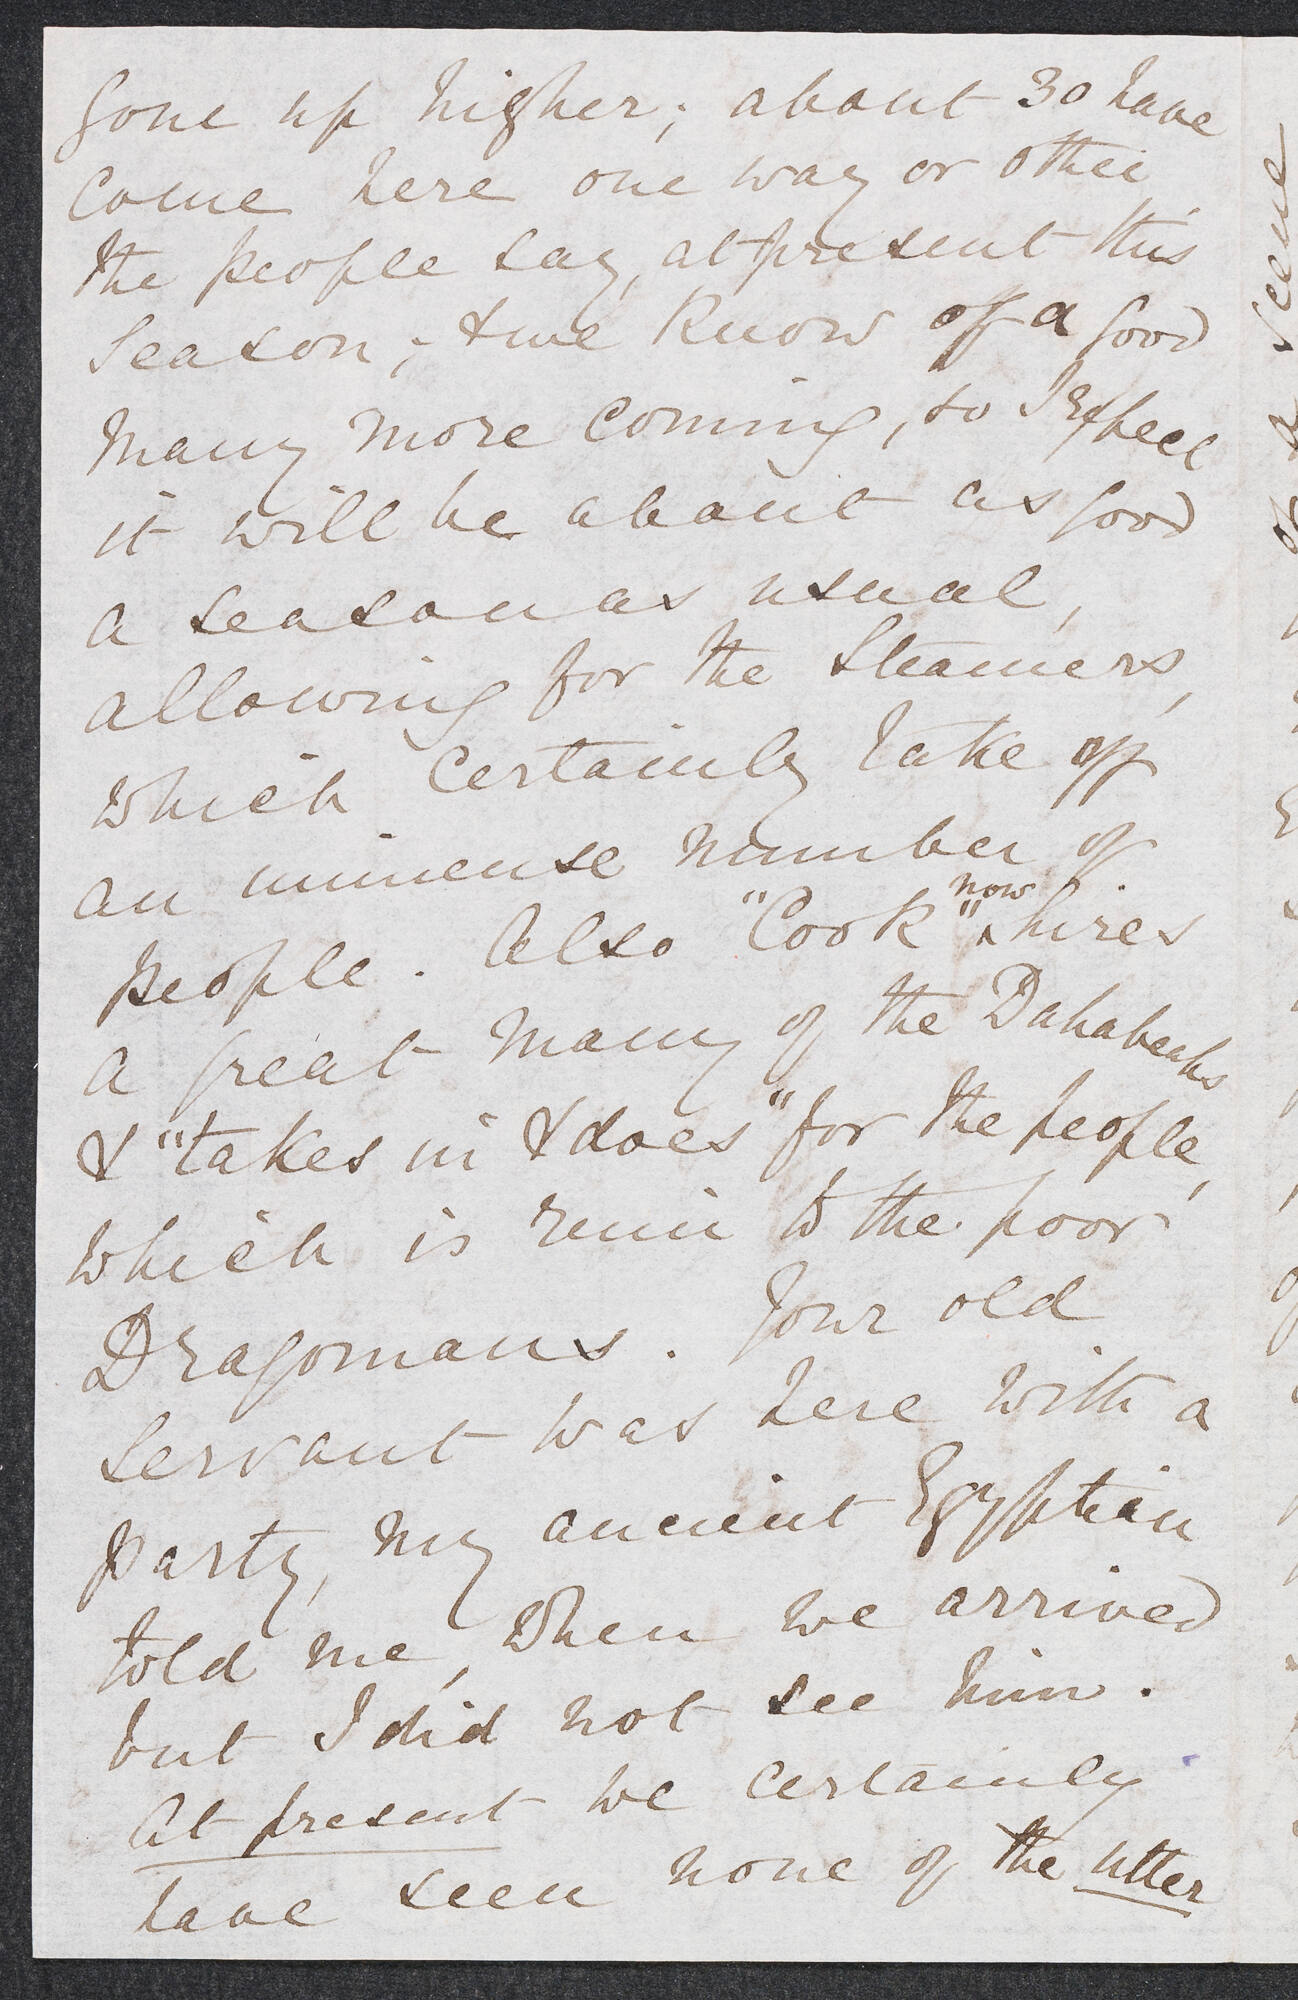 gone up higher; about 30 have
come here one way or other,
the people say, at present this
season; & we know of a good
many more coming, so I expect
it will be about as good
a season as usual,
allowing for the Steamers,
which certainly take off
an immense number of
people. Also "Cook" now hires
a great many of the Dahabeahs
& "takes in & does" for the people,
which is ruin to the poor
Dragomans. Your old
servant was here with a
party, my ancient Egyptian
told me, when we arrived
but I did not see him.
At present we certainly
have seen none of the utter
scene